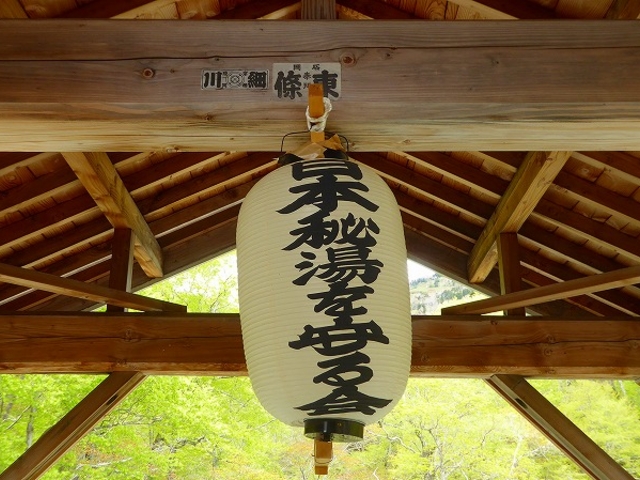 川細
條東
日本秘湯を守る会